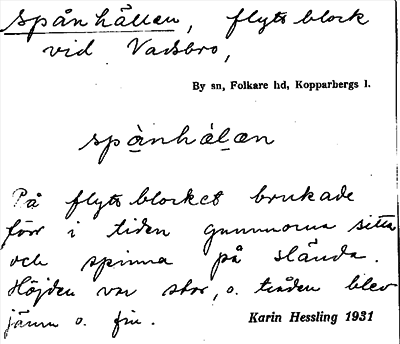 Spånhällen, flytblock
vid Vadsbro,
By sn, Folkare hd, Kopparbergs l.
spànhàlæn
På flytblocket brukade
förr i tiden gummorna sitta
och spinna på slända.
Höjden var stor, o. tråden blev
jämn o. fin.
Karin Hessling 1931